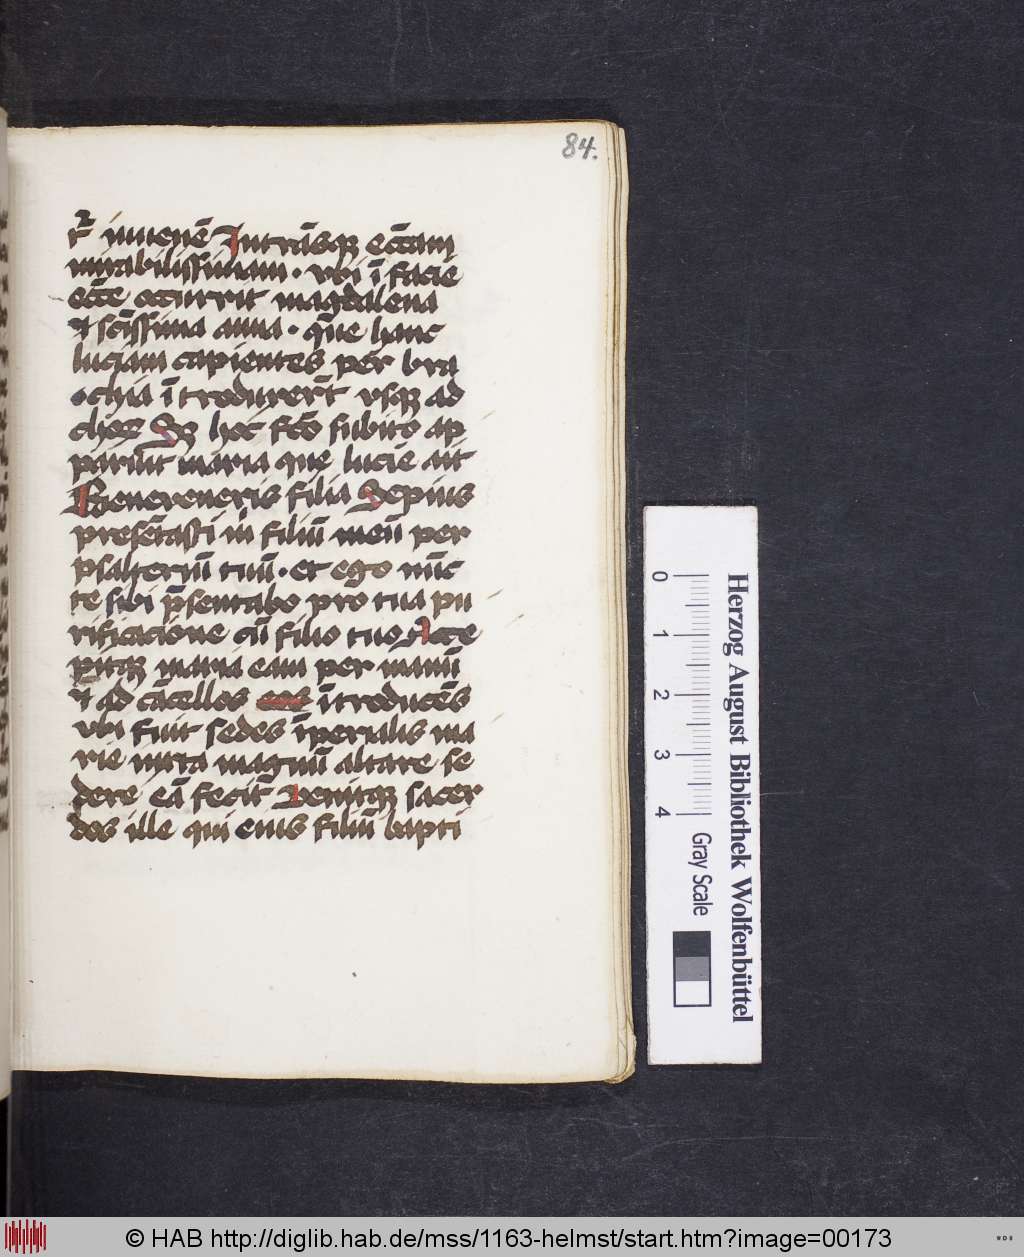 84.
r̄ iuuenē Intrāsq; ecc̄am
mirabilissimam · vbi ī facie
ecc̄e occurrit magdalena
⁊ sc̄issima anna · que hanc
luciam capientes per bra
chia ītroduxer̄t vsq; ad
Sz hoc fc̄o subito ap
paruit maria que lucie ait
Beneveneris filia Sepius
presētasti m̄ filiū meū per
psalteriū tuū · et ego nūc
te sibi p̄sentabo pro tua pu
rificacione cū filio tuo Acce
pitq; maria eam per manū
⁊ ad cācellos ītroducēs
vbi fuit sedes īperialis ma
rie iuxta magnū altare se
dere eā fecit Deniq; sacer
dos ille qui eius filiū bapti
Herzog August Bibliothek Wolfenbüttel
0 1 2 3 4 Gray Scale
© HAB http://diglib.hab.de/mss/1163-helmst/start.htm?image=00173